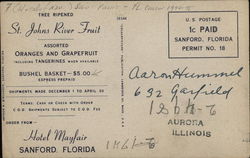 TREE RIPENED
St. Johns River Fruit
ASSORTED
ORANGES AND GRAPEFRUIT
INCLUDING TANGERINES WHEN AVAILABLE
BUSHEL BASKET—$5.00
EXPRESS PREPAID
SHIPMENTS MADE DECEMBER 1 TO APRIL 30
TERMS: CASH OR CHECK WITH ORDER
C.O.D. SHIPMENTS SUBJECT TO C.O.D. FEE
ORDER FROM—
Hotel Mayfair
SANFORD, FLORIDA
U.S. POSTAGE
1c PAID
SANFORD, FLORIDA
PERMIT NO. 18
Aaron Hummel
632 Garfield
AURORA
ILLINOIS